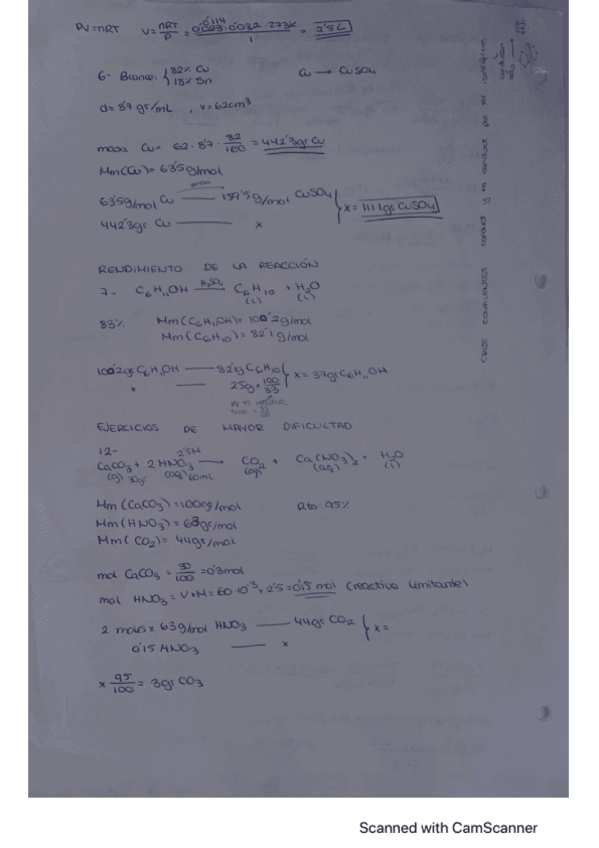 PV=nRT V= nRT/P = 0'114 0'082 · 273K / 1 = 2'5L
6- Bronce: { 82% Cu 18% Sn Cu → CuSO4
d= 8'7 gr/mL , v=62cm³
masa Cu= 62·8'7· 82/100 = 442'3gr Cu
Mm(Cu)= 63'5g/mol
63'5g/mol Cu —— 159'5g/mol CuSO4 } x= 1111gr CuSO4
442'3gr Cu —— x
RENDIMIENTO DE LA REACCIÓN
7- C6H11OH H2SO4 → C6H10 + H2O
(l) (l)
83% Mm(C6H11OH)= 100'2g/mol
Mm(C6H10)= 82'1g/mol
100'2gr C6H11OH —— 82'1g C6H10 } x= 37gr C6H11OH
x —— 25g· 100/83
EJERCICIOS DE MAYOR DIFICULTAD
12- 2'5M
CaCO3 + 2 HNO3 → CO2 + Ca(NO3)2 + H2O
(s) 30gr (aq) 60mL (g) (aq) (l)
Mm (CaCO3) =100gr/mol Rto: 95%
Mm (HNO3) = 63gr/mol
Mm( CO2)= 44gr/mol
mol CaCO3 = 30/100 =0'3mol
mol HNO3 = V×M= 60·10⁻³ × 2'5 = 0'15 mol (reactivo limitante)
2 moles × 63g/mol HNO3 —— 44gr CO2 } x=
0'15 HNO3 —— x
x 95/100 = 3gr CO3
Scanned with CamScanner